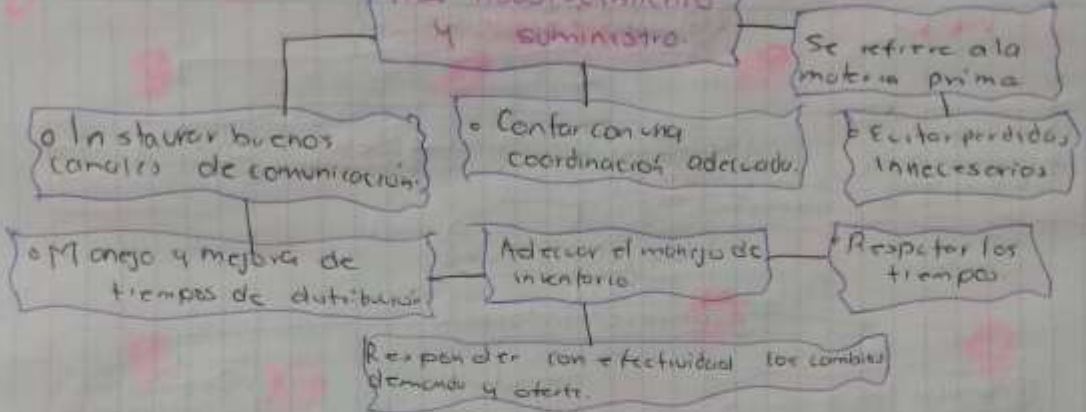 y suministro.
Se refiere a la
materia prima
o Instaurar buenos
canales de comunicación.
o Contar con una
coordinación adecuada.
o Evitar perdidas
innecesarias
o Manejo y mejora de
tiempos de distribución
Adecuar el manejo de
inventario
• Respetar los
tiempos
Responder con efectividad los cambios
demanda y oferta.